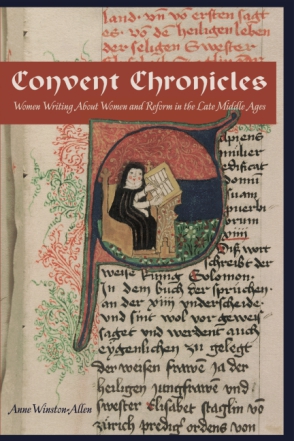 land· vn̄ vō ersten sagt
es· vō de heiligen leben
der seligen Swester
Convent Chronicles
Women Writing About Women and Reform in the Late Middle Ages
apiens
mulier
edificat
domū
suam
puerbi
orum
xiiij
Diß wort
schreibt der
weise Kunig Solomon·
In dem buch der spruchen·
an der xiiij vnderscheide·
vnd sint wol vor geweis
saget vnd werdent auch
eygenlichen zu gelegt
der weisen frawē Ja der
heiligen Jungfrawē vnd
swester Elisabet staglin vō
zürich prediger ordens von
Anne Winston-Allen